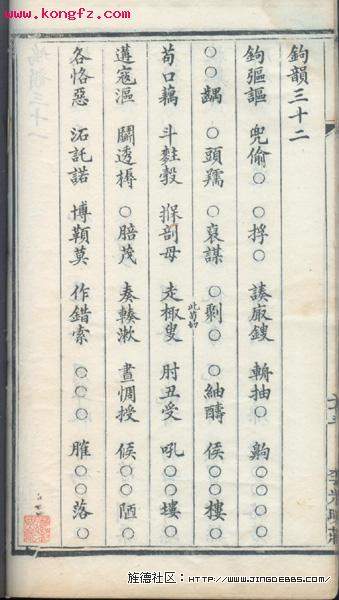 www.kongfz.com
鉤韻三十二
鉤彄謳 兜偷○ ○捊○ 諑廒鎪 輈抽○ 齁○○○○
○○齵 ○頭羺 ○裒謀 ○剩○ ○紬醻 侯○○樓○
此苟切
苟口藕 斗㪷㝅 掊剖母 走棷叟 肘丑受 吼○○塿○
遘寇漚 鬬透槈 ○踣茂 奏輳漱 晝惆授 候○○陋○
各恪惡 沰託諾 博顐莫 作錯索 ○○○ 臛○○落○
旌德社区：HTTP://WWW.JINGDEBBS.COM/